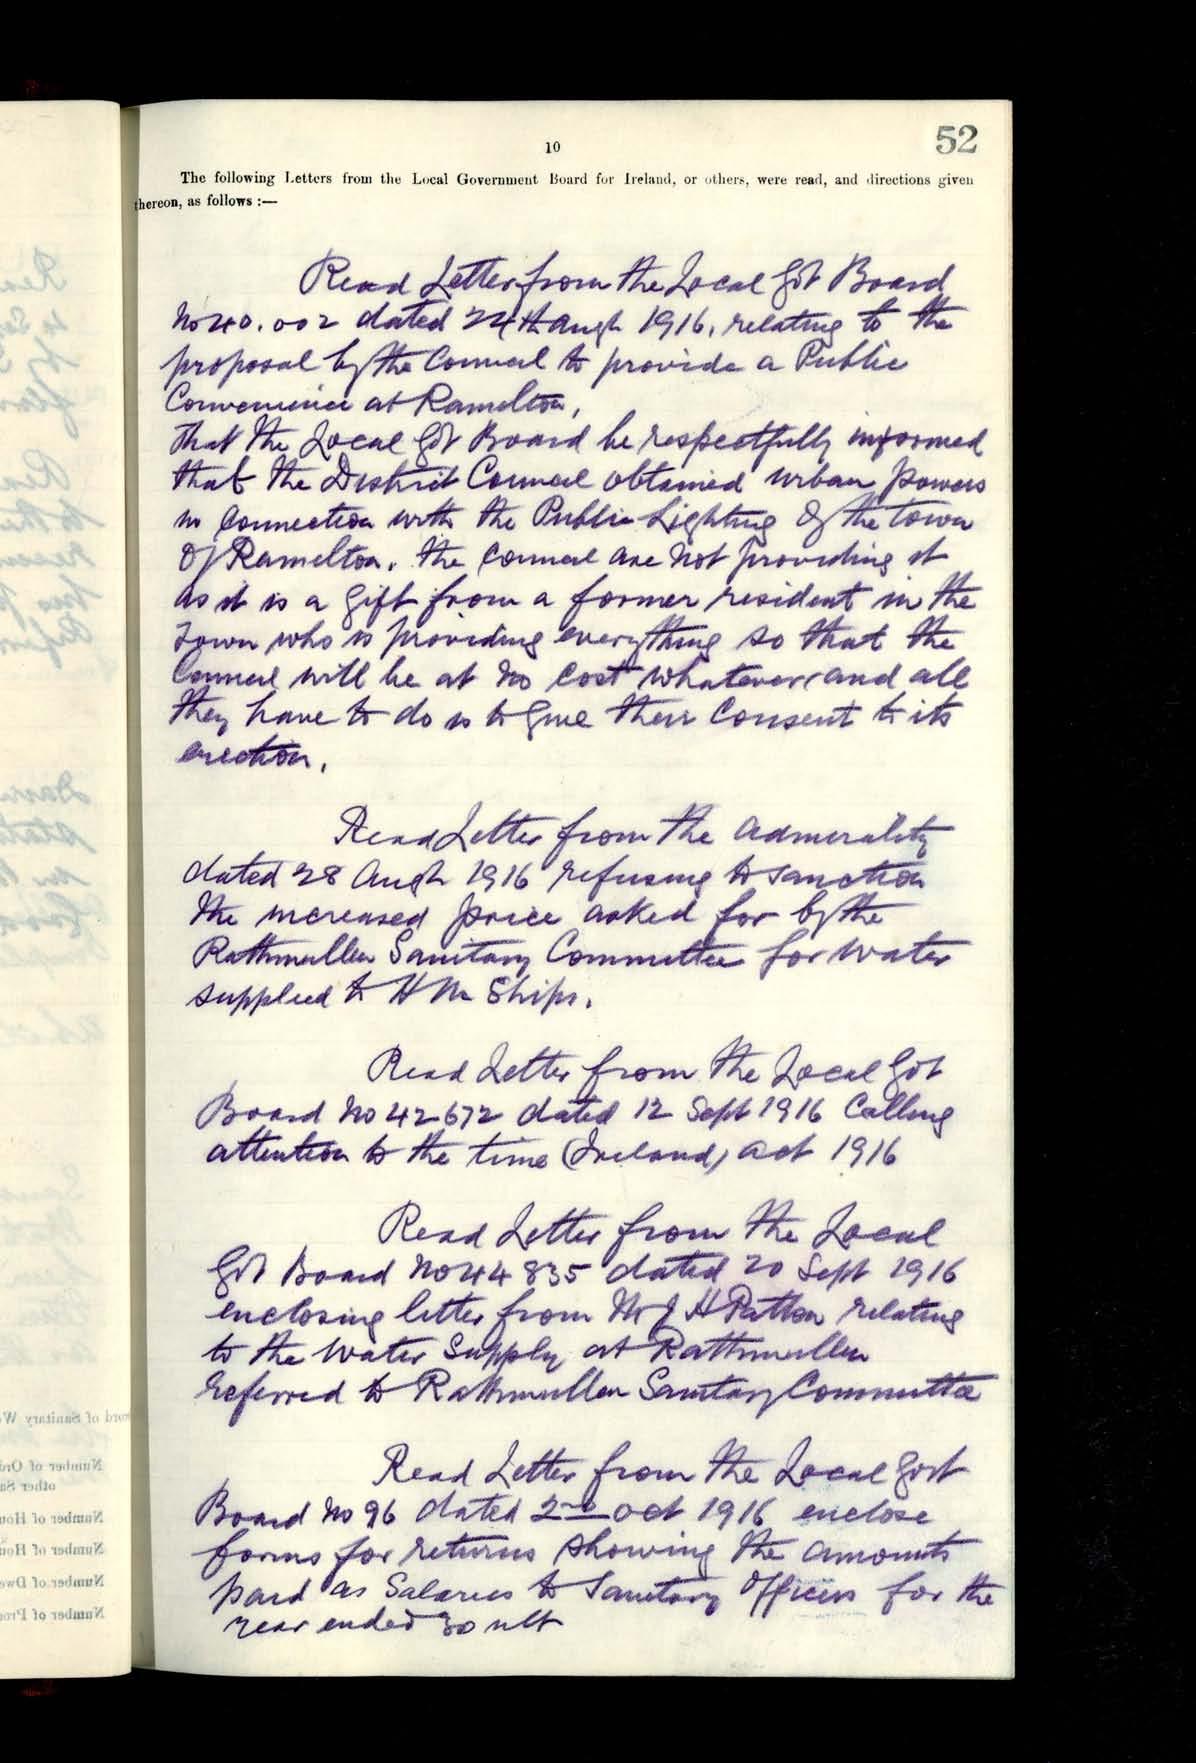 10
52
The following Letters from the Local Government Board for Ireland, or others, were read, and directions given
thereon, as follows :—
Read Letter from the Local Govt Board
No 40.002 dated 24th Augt 1916, relating to the
proposal by the Council to provide a Public
Convenience at Ramelton,
That the Local Govt Board be respectfully informed
that the District Council obtained urban powers
in connection with the Public Lighting of the Town
of Ramelton. The Council are not providing it
as it is a gift from a former resident in the
Town who is providing everything so that the
Council will be at no cost whatever and all
they have to do is to give their consent to its
erection.
Read Letter from the Admerality
dated 28 Augt 1916 refusing to sanction
the increased price asked for by the
Rathmullen Sanitary Committee for water
supplied to H M Ships.
Read Letter from the Local Govt
Board No 42672 dated 12 Sept 1916 calling
attention to the time (Ireland) act 1916
Read Letter from the Local
Govt Board No 44835 dated 20 Sept 1916
enclosing letter from Mr J H Patton relating
to the Water Supply at Rathmullen
referred to Rathmullen Sanitary Committee
Read Letter from the Local Govt
Board No 96 dated 2nd Oct 1916 enclose
forms for returns showing the amounts
paid as Salaries to Sanitary Officers for the
year ended 30 ult